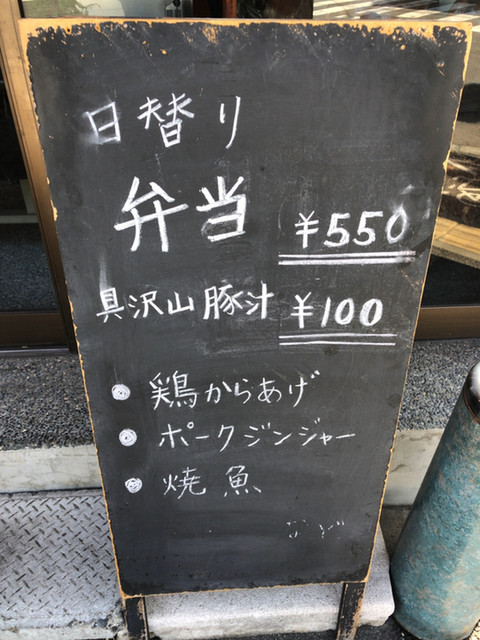 日替り
弁当 ¥550
具沢山豚汁 ¥100
鶏からあげ
ポークジンジャー
焼魚